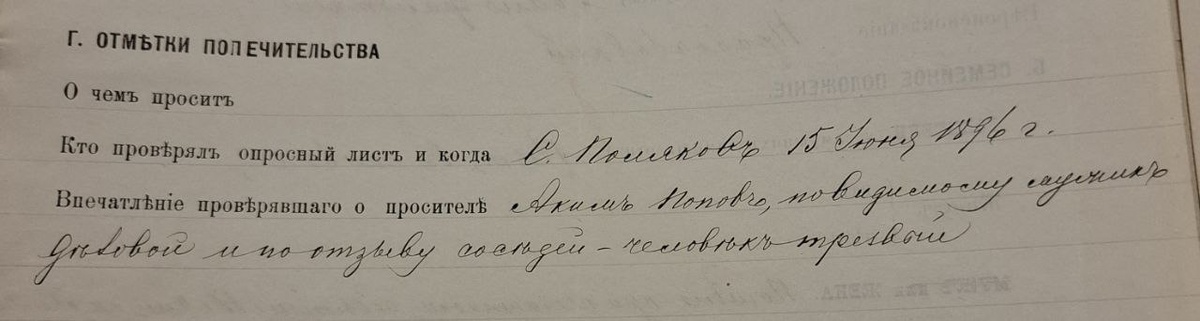 Г. ОТМѢТКИ ПОПЕЧИТЕЛЬСТВА
О чемъ проситъ
Кто провѣрялъ опросный листъ и когда С. Поляковъ 15 Іюня 1896 г.
Впечатлѣніе провѣрявшаго о просителѣ Акимъ Поповъ, повидимому мужикъ
дѣловой и по отзыву сосѣдей – человѣкъ трезвый
Б. СЕМЕЙНОЕ ПОЛОЖЕНІЕ